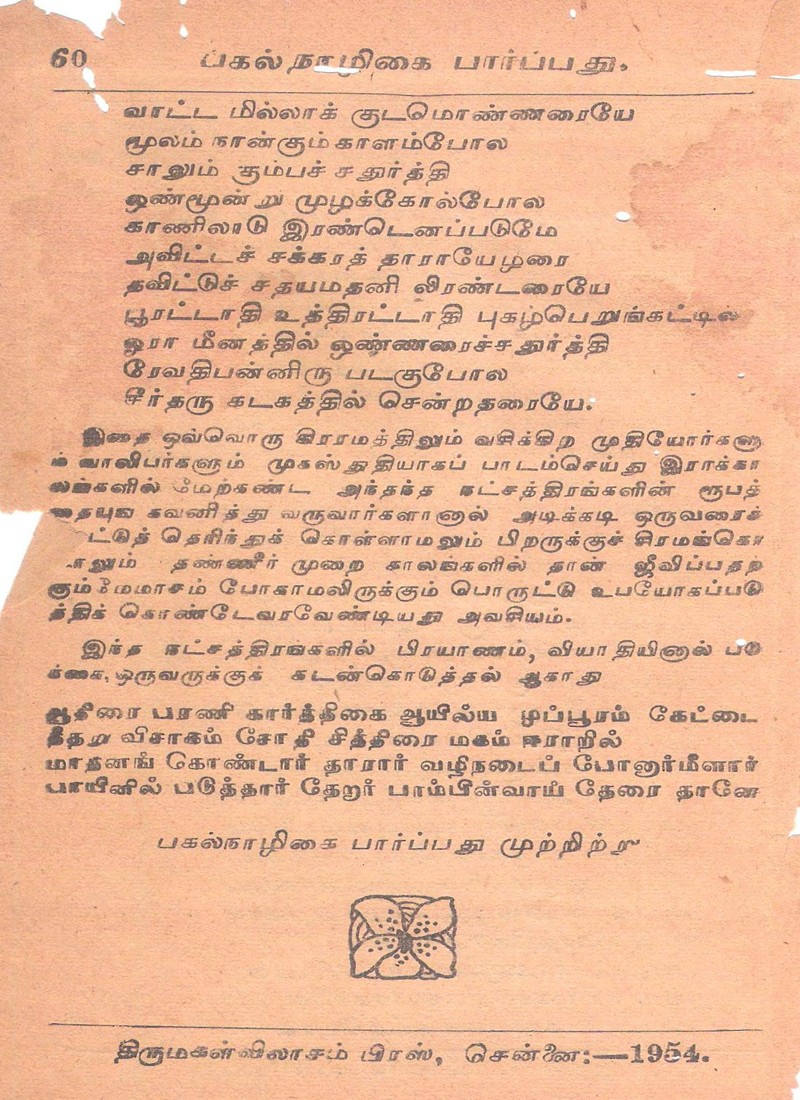 60 பகல் நாழிகை பார்ப்பது.
வாட்ட மில்லாக் குடமொண்ணரையே
மூலம் நான்கும்காளம்போல
சாலும் கும்பச் சதுர்த்தி
ஒண்மூன்று முழக்கோல்போல
காணிலாடு இரண்டெனப்படுமே
அவிட்டச் சக்கரத் தாராயேழரை
தவிட்டுச் சதயமதனி லிரண்டரையே
பூரட்டாதி உத்திரட்டாதி புகழ்பெறுங்கட்டில்
ஓரா மீனத்தில் ஒண்ணரைச்சதுர்த்தி
ரேவதிபன்னிரு படகுபோல
சீர்தரு கடகத்தில் சென்றதரையே.
இதை ஒவ்வொரு கிராமத்திலும் வசிக்கிற முதியோர்களு
ம் வாலிபர்களும் முகஸ்துதியாகப் பாடம்செய்து இராக்கா
லங்களில் மேற்கண்ட அந்தந்த நட்சத்திரங்களின் ரூபத்
தையுங் கவனித்து வருவார்களானால் அடிக்கடி ஒருவரைக்
ட்டுத் தெரிந்துக் கொள்ளாமலும் பிறருக்குச் சிரமங்கொ
டாலும் தண்ணீர் முறை காலங்களில் தான் ஜீவிப்பதற்
கும்மோசம் போகாமலிருக்கும் பொருட்டு உபயோகப்படு
த்திக் கொண்டேவரவேண்டியது அவசியம்.
இந்த நட்சத்திரங்களில் பிரயாணம், வியாதியினால் படு
க்கை, ஒருவருக்குக் கடன்கொடுத்தல் ஆகாது
ஆதிரை பரணி கார்த்திகை ஆயில்ய முப்பூரம் கேட்டை
தீதறு விசாகம் சோதி சித்திரை மகம் ஈராறில்
மாதனங் கொண்டார் தாரார் வழிநடைப் போனார்மீளார்
பாயினில் படுத்தார் தேறார் பாம்பின்வாய் தேரை தானே
பகல்நாழிகை பார்ப்பது முற்றிற்று
திருமகள்விலாசம் பிரஸ், சென்னை:—1954.